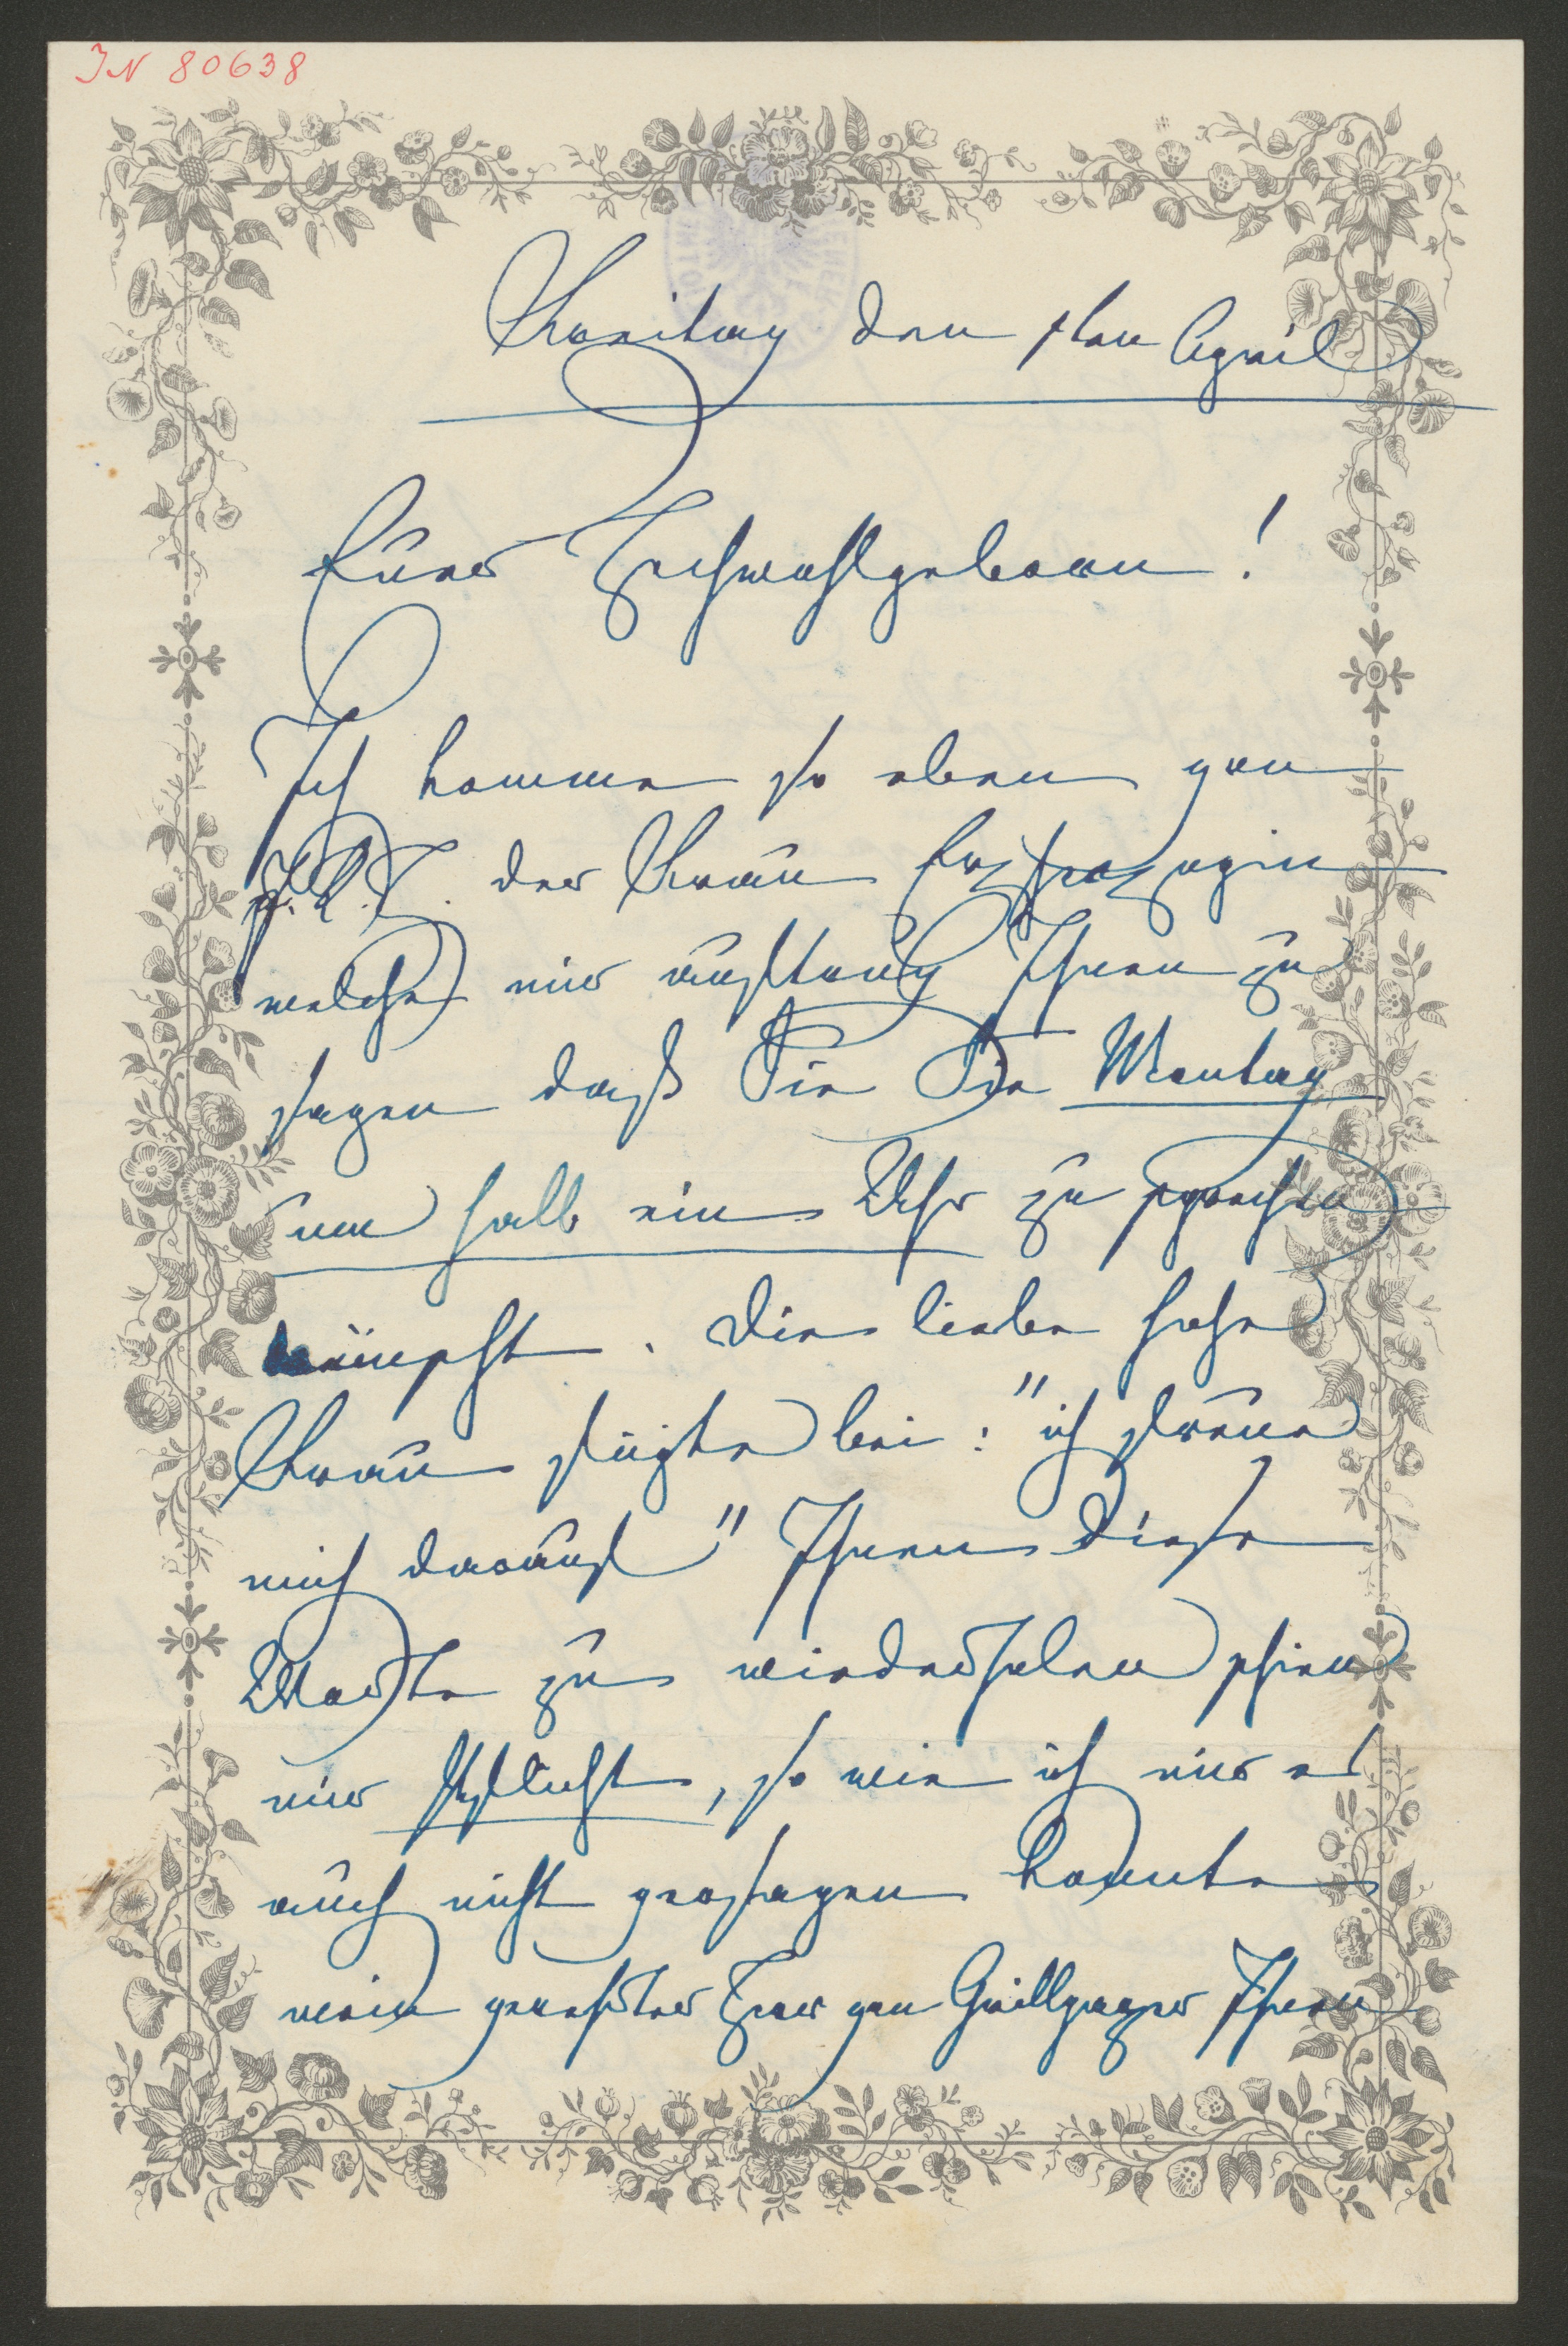 IN 80638
Freitag den 1ten April
Euer Hochwohlgeboren!
Ich komme so eben von
I. K. H. der Frau Erzherzogin
welche mir auftrug Ihnen zu
sagen daß Sie Sie Montag
um halb ein Uhr zu sprechen
wünscht. Die liebe hohe
Frau fügte bei: "ich freue
mich darauf" Ihnen diese
Worte zu wiederholen schien
mir Pflicht, so wie ich mir es
auch nicht versagen konnte
mein verehrter Herr von Grillparzer Ihnen